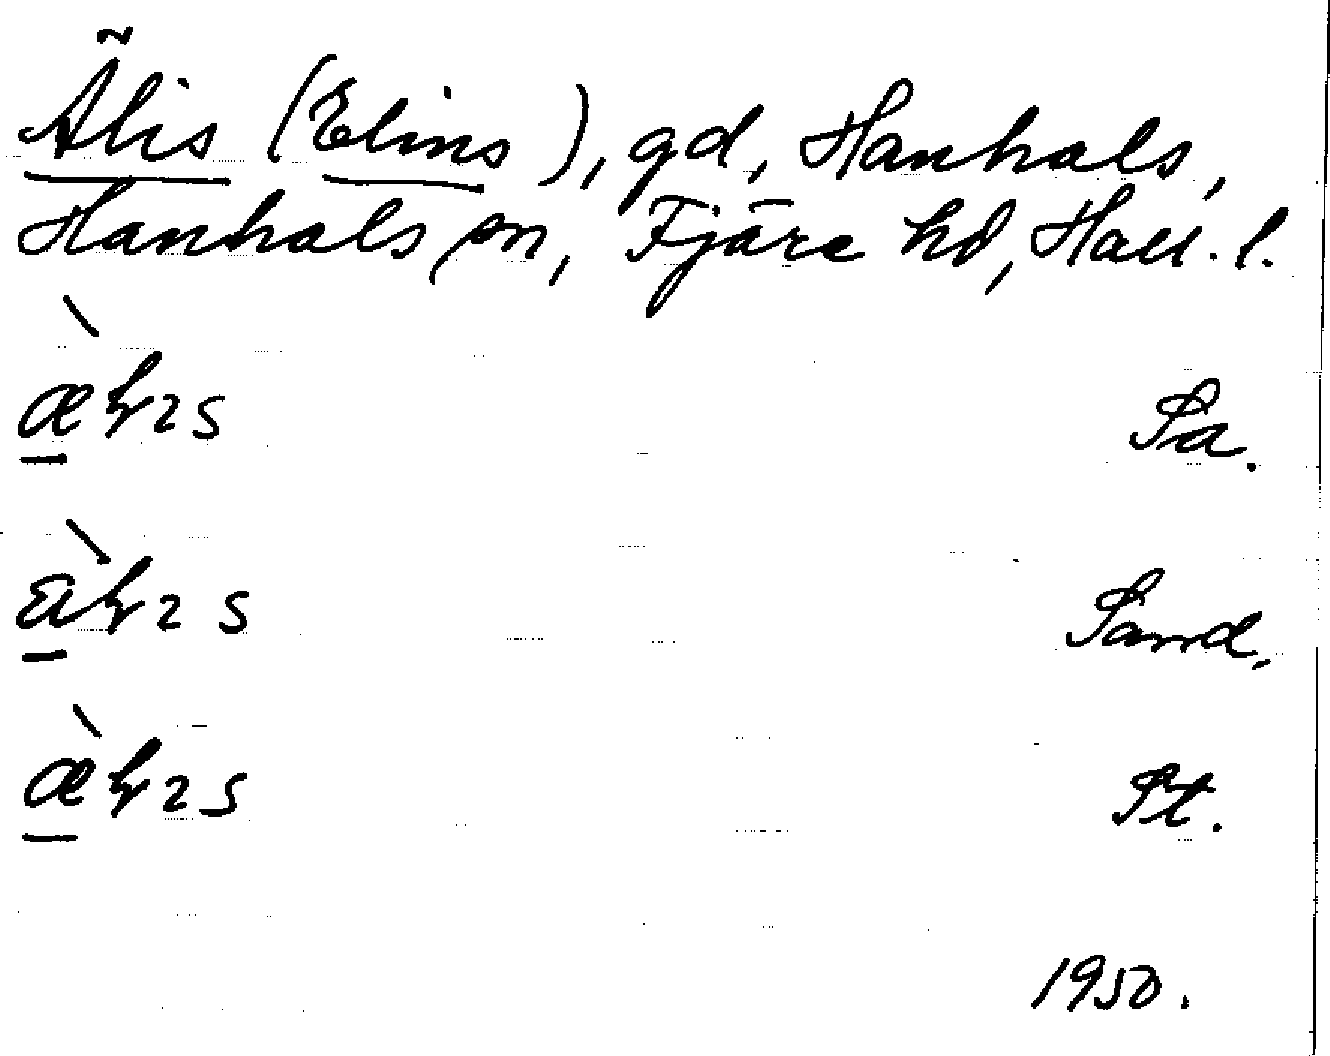 Älis (Elins), gd, Hanhals,
Hanhals sn, Fjäre hd, Hall. l.
æ̀ɫɩs Sa.
àɫɩs Sand.
æ̀ɫɩs St.
1950.